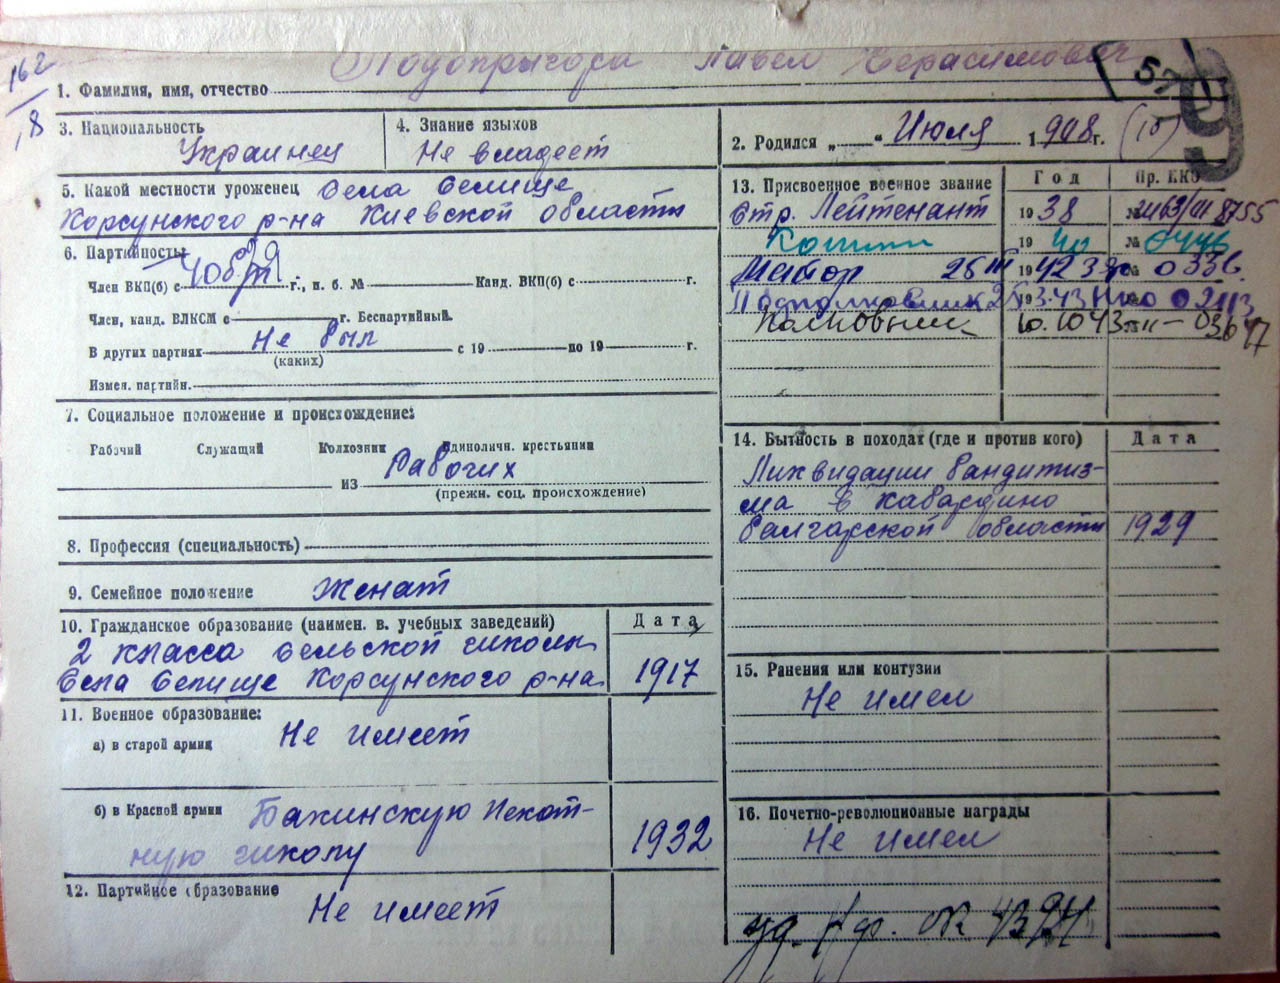 Подопрыгора Павел Герасимович
162
18
57
9
1. Фамилия, имя, отчество
3. Национальность Украинец
4. Знание языков Не владеет
2. Родился „ “ Июля 1908 г.
5. Какой местности уроженец Села Селище
Корсунского р-на Киевской области
6. Партийность:
Член ВКП(б) с г., п. б. № Канд. ВКП(б) с г.
Член, канд. ВЛКСМ с г. Беспартийный.
В других партиях Не был с 19 по 19 г.
(каких)
Измен. партийн.
7. Социальное положение и происхождение:
Рабочий Служащий Колхозник Единоличн. крестьянин
из Рабочих
(прежн. соц. происхождение)
8. Профессия (специальность)
9. Семейное положение Женат
10. Гражданское образование (наимен. в. учебных заведений) Дата
2 класса сельской школы
Села Селище Корсунского р-на 1917
11. Военное образование:
а) в старой армии Не имеет
б) в Красной армии Бакинскую Пехот-
ную школу 1932
12. Партийное образование
Не имеет
13. Присвоенное военное звание Год Пр. НКО
Стр. Лейтенант 1938 №
19 40 №
Майор 28 III 1942 № 0336
Подполковник 43 02113
Полковник 10.10 43
14. Бытность в походах (где и против кого) Дата
Ликвидации бандитиз-
ма в кабардино
балгарской области 1929
15. Ранения или контузии
Не имел
16. Почетно-революционные награды
Не имел